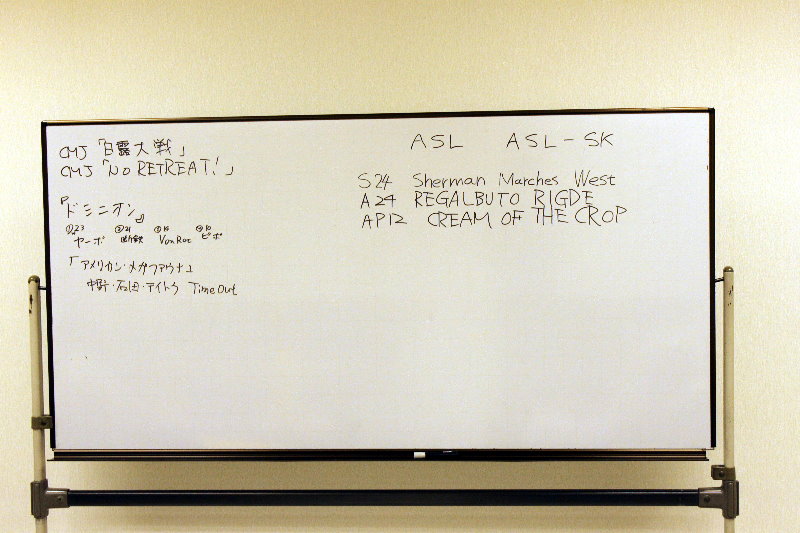 CMJ「白露大戦」
CMJ「NO RETREAT!」
『ドミニオン』
①23 ②21 ③15 ④10
ヤーボ 断鉄 VonRoe ビボ
「アメリカン・メガファウナ」
中野・石田・アイトク TimeOut
ASL ASL-SK
S24 Sherman Marches West
A24 REGALBUTO RIGDE
AP12 CREAM OF THE CROP